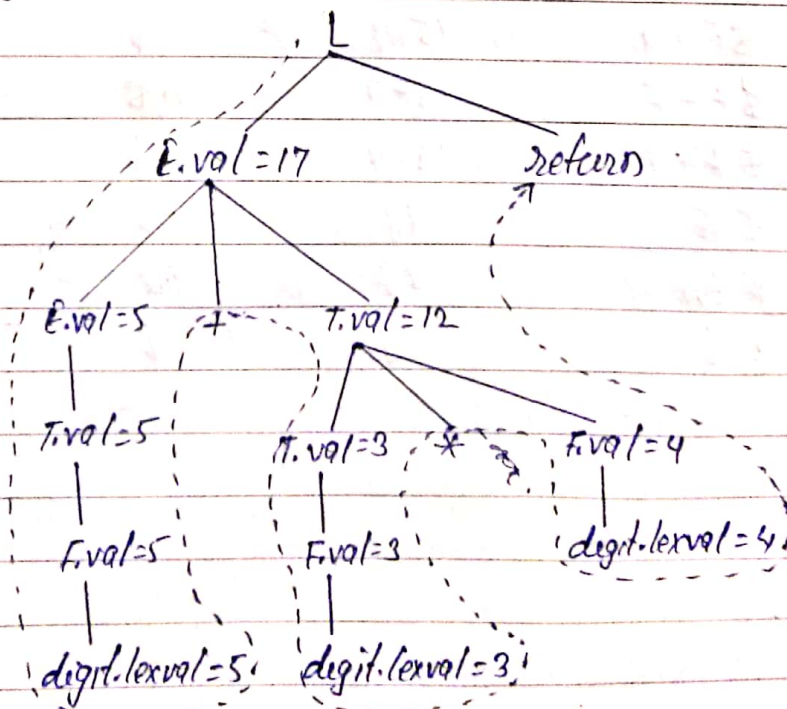 L
E.val=17 return
E.val=5 + T.val=12
T.val=5 T.val=3 * F.val=4
F.val=5 F.val=3 digit.lexval=4
digit.lexval=5 digit.lexval=3